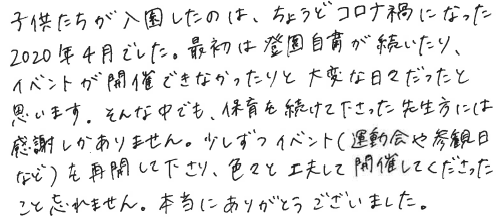 子供たちが入園したのは、ちょうどコロナ禍になった
2020年4月でした。最初は登園自粛が続いたり、
イベントが開催できなかったりと大変な日々だったと
思います。そんな中でも、保育を続けて下さった先生方には
感謝しかありません。少しずつイベント(運動会や参観日
など)を再開して下さり、色々と工夫して開催してくださった
こと忘れません。本当にありがとうございました。